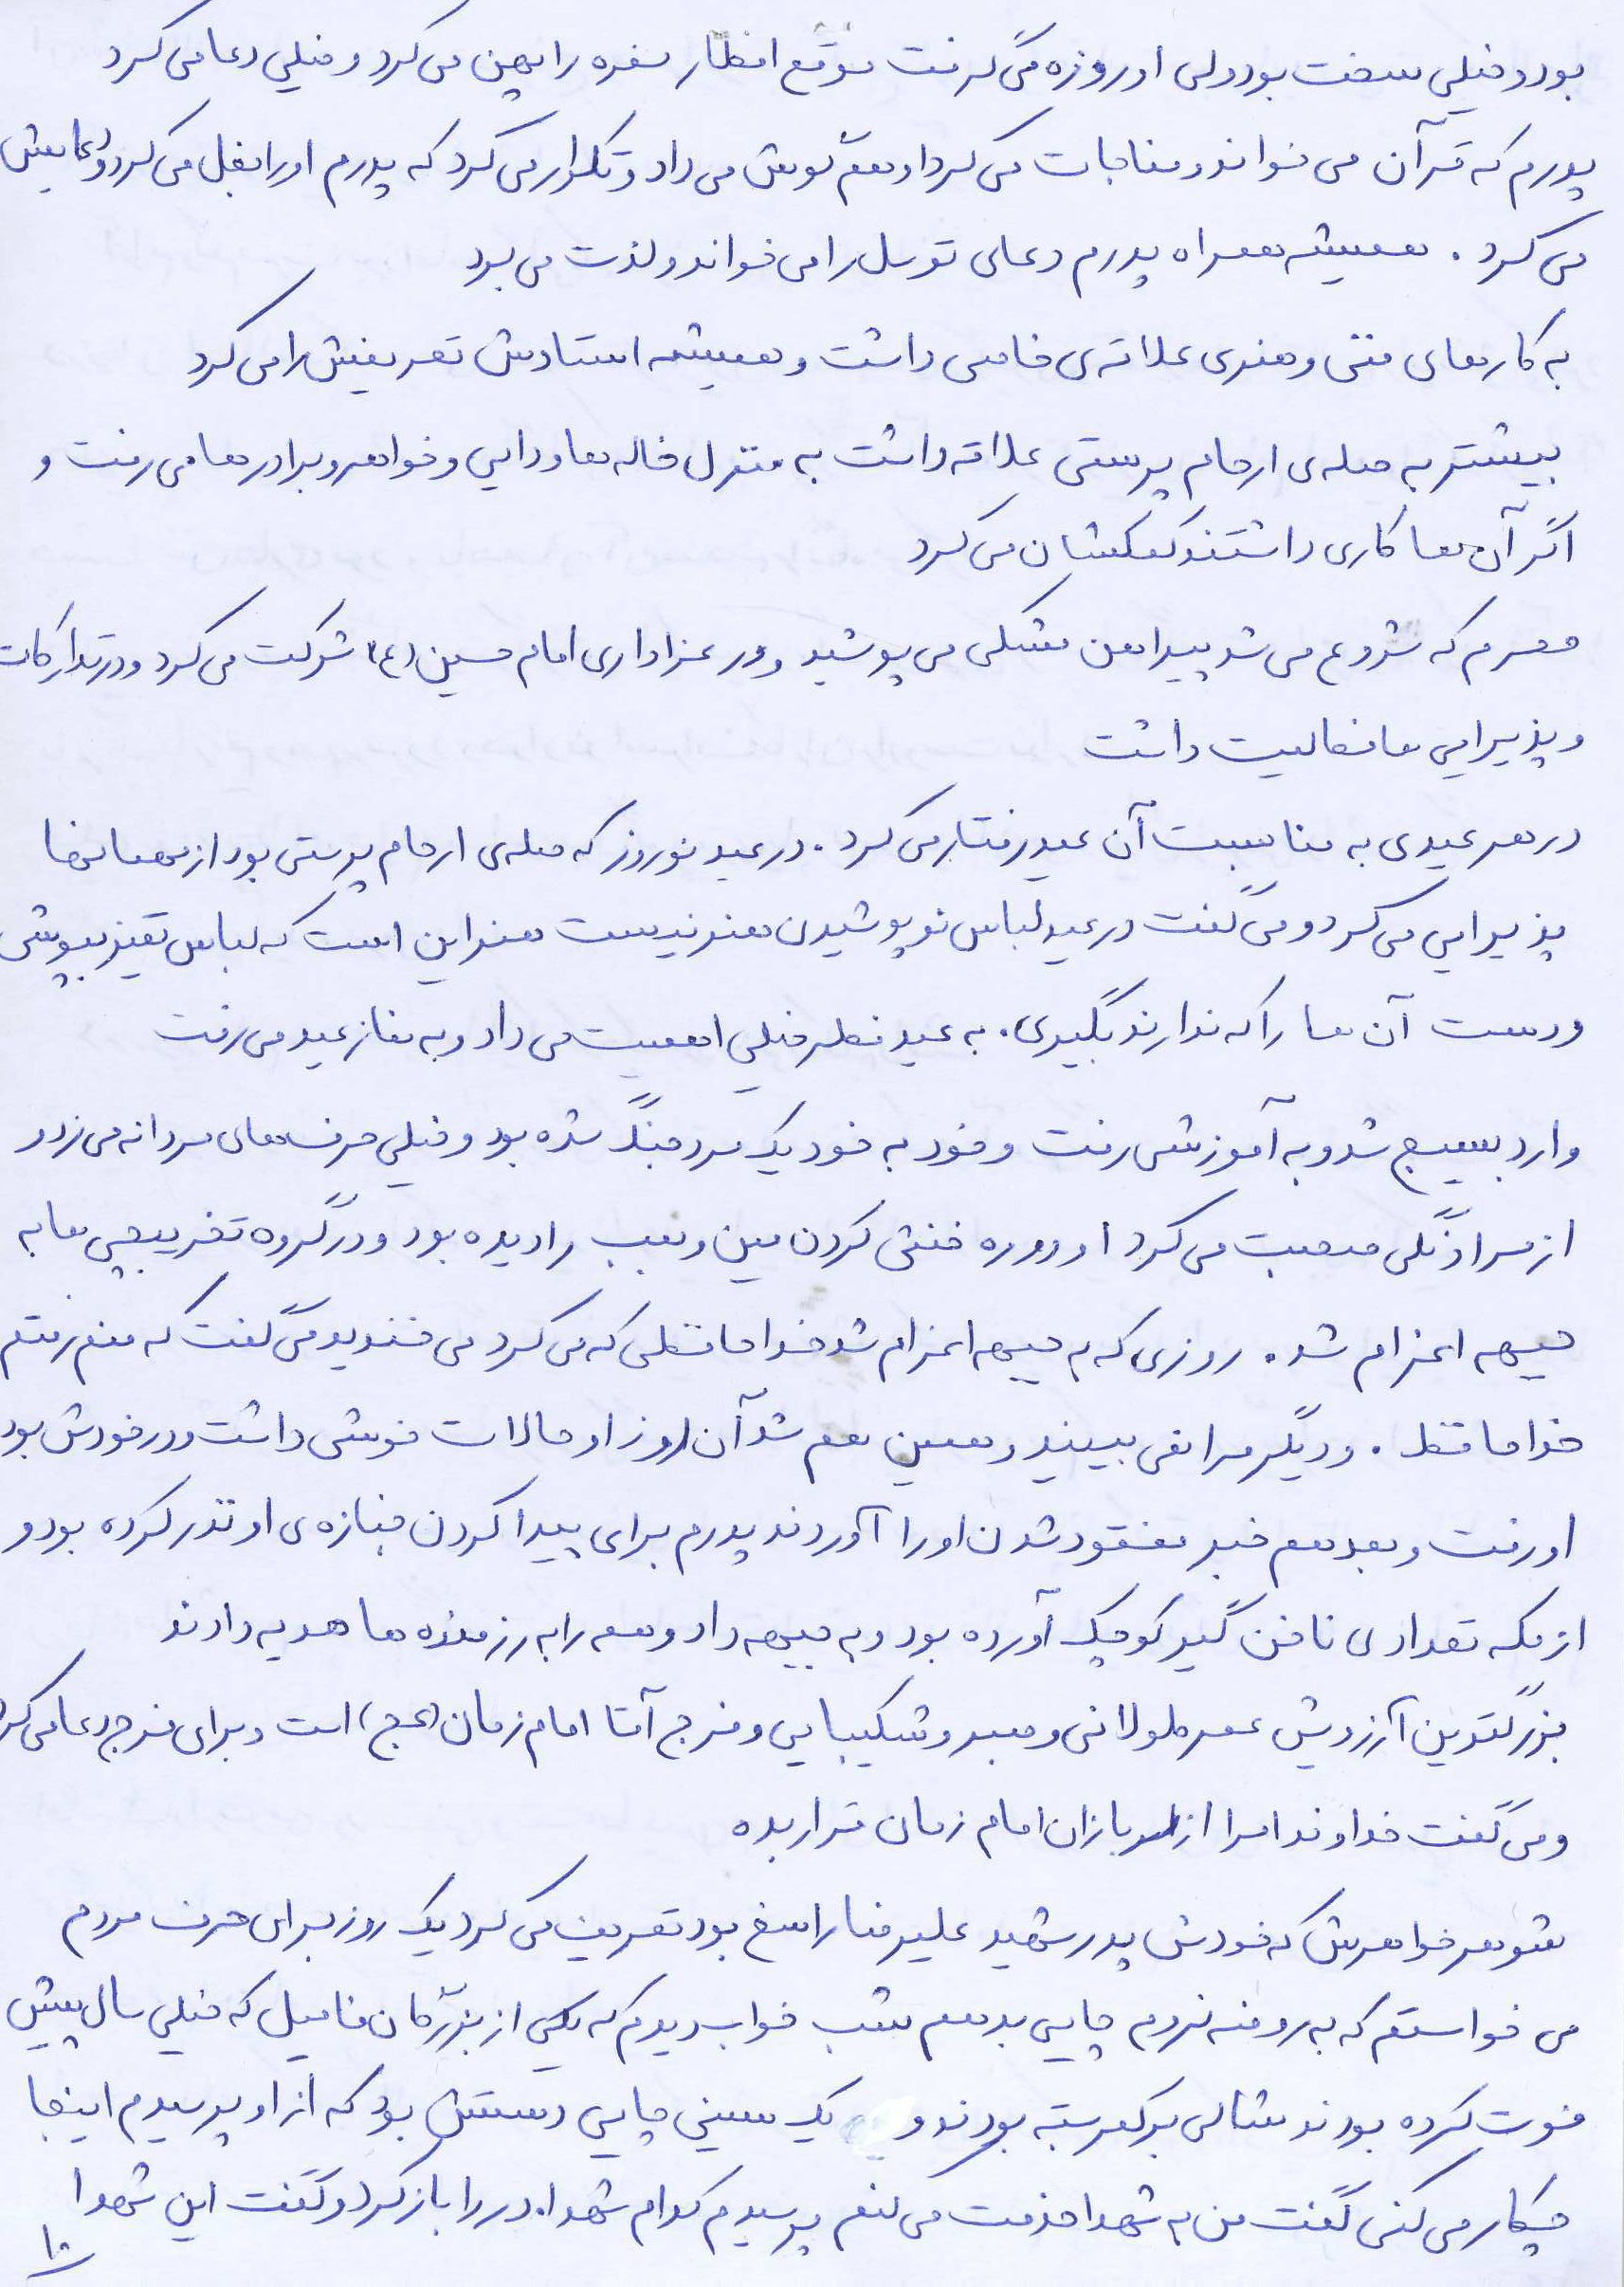 بود و خیلی سخت بود ولی او روزه می گرفت موقع افطار سفره را پهن می کرد و خیلی دعا می کرد
پدرم که قرآن می خواند و مناجات می کرد او هم گوش می داد و تکرار می کرد که پدرم او را بغل می کرد و دعایش
می کرد . همیشه همراه پدرم دعای توسل را می خواند و لذت می برد
به کارهای فنی و هنری علاقه ی خاصی داشت و همیشه استادش تعریفش را می کرد
بیشتر به صله ی ارحام پرستی علاقه داشت به منزل خاله ها و دایی و خواهر و برادرها می رفت و
اگر آن ها کاری داشتند کمکشان می کرد
محرم که شروع می شد پیراهن مشکی می پوشید و در عزاداری امام حسین (ع) شرکت می کرد و در تدارکات
و پذیرایی ها فعالیت داشت
در هر عیدی به مناسبت آن عید رفتار می کرد . در عید نوروز که صله ی ارحام پرستی بود از مهمانها
پذیرایی می کرد و می گفت در عید لباس نو پوشیدن هنر نیست هنر این است که لباس تمیز بپوشی
و دست آن ها را که ندارند بگیری . به عید فطر خیلی اهمیت می داد و به نماز عید می رفت
وارد بسیج شد و به آموزشی رفت و خود به خود یک مرد جنگ شده بود و خیلی حرف های مردانه می زد و
از مردانگی صحبت می کرد او دوره خنثی کردن مین و بمب را دیده بود و در گروه تخریبچی ها به
جبهه اعزام شد . روزی که به جبهه اعزام شد خداحافظی که می کرد می خندید می گفت که منم رفتم
خداحافظ . و دیگر مرا نمی بینید و همین هم شد آن روز او حالات خوشی داشت و در خودش بود
او رفت و بعد هم خبر مفقود شدن او را آوردند پدرم برای پیدا کردن جنازه ی او نذر کرده بود و
از مکه تعدادی ناخن گیر کوچک آورده بود و به جبهه داد و همه را به رزمنده ها هدیه دادند
بزرگترین آرزویش عمر طولانی و صبر و شکیبایی و فرج آقا امام زمان (عج) است و برای فرج دعا می کرد
و می گفت خداوندا مرا از سربازان امام زمان قرار بده
شوهر خواهرش که خودش پدر شهید علیرضا راسخ بود تعریف می کرد یک روز برای حرف مردم
می خواستم که به روضه نروم چایی بدهم شب خواب دیدم که یکی از بزرگان فامیل که خیلی سال پیش
فوت کرده بودند شالی بر کمر بسته بودند و یک سینی چایی دستش بود که از او پرسیدم اینجا
چکار می کنی گفت من به شهدا خدمت می کنم پرسیدم کدام شهدا . در را باز کرد و گفت این شهدا
۱۰